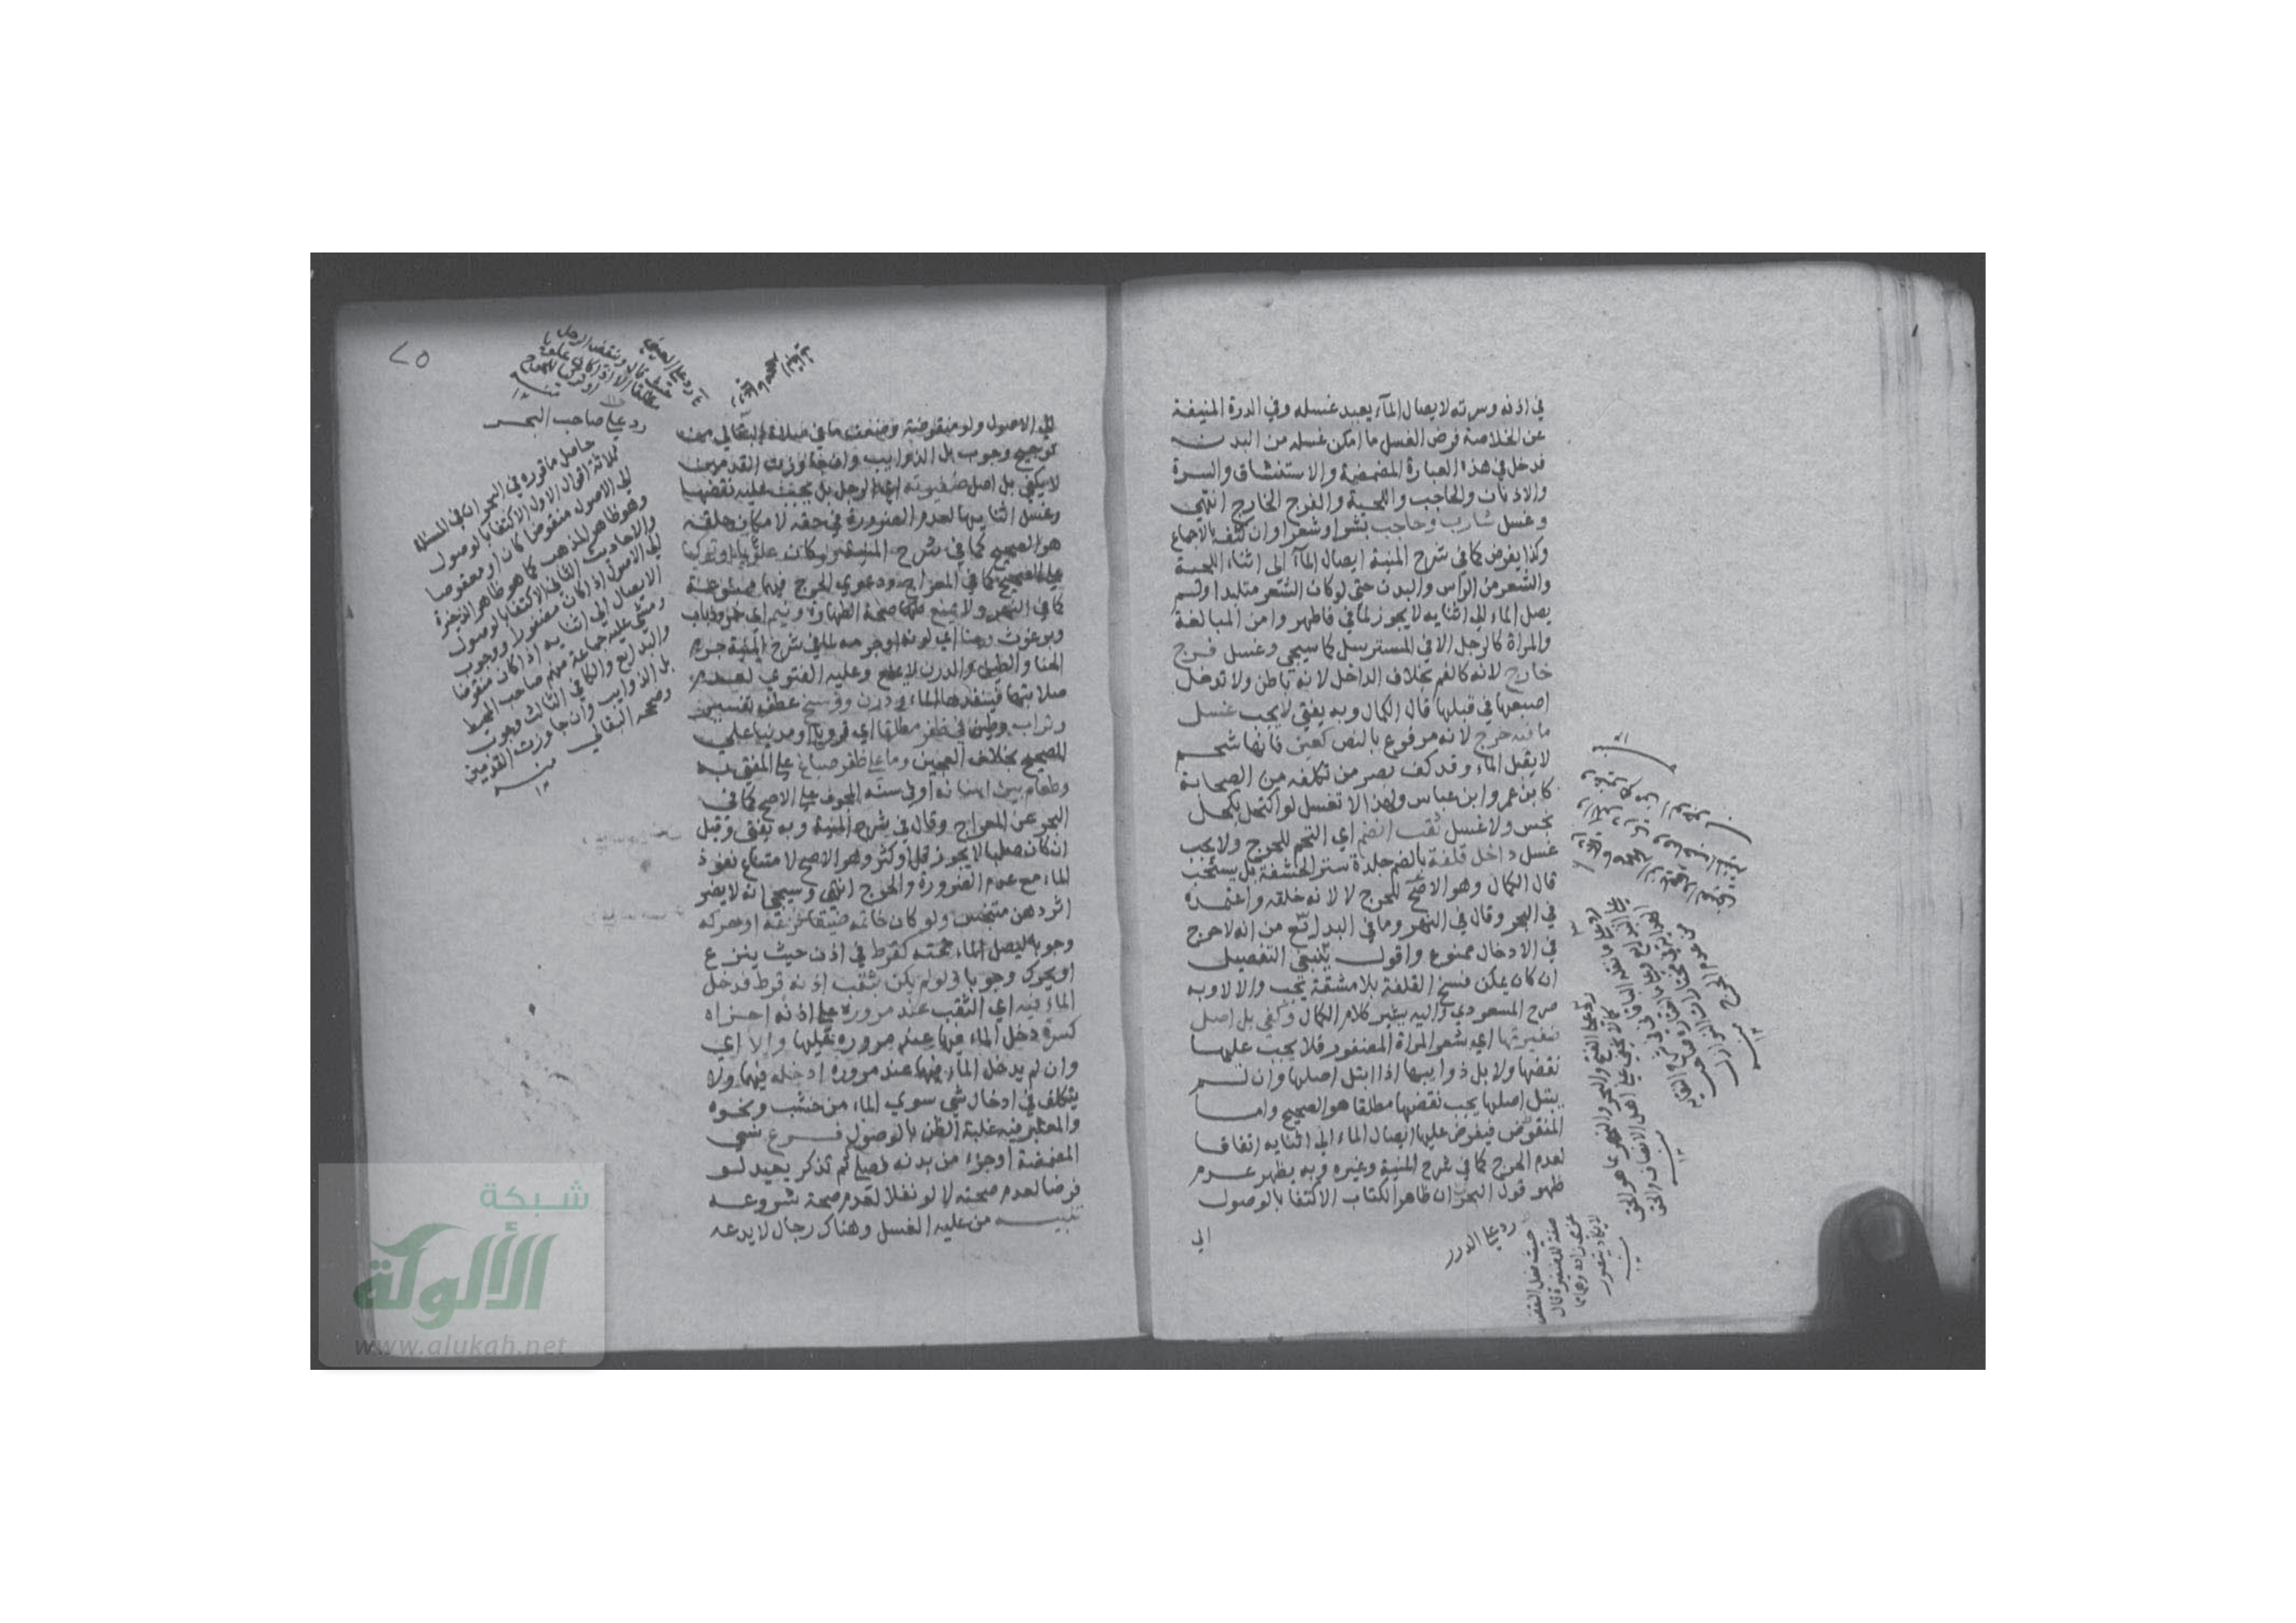 في اذنه وسرته لايصال الماء يعيد غسله وفي الدرة المنيفة
عن الخلاصة فرض الغسل ما امكن غسله من البدن
فدخل في هذه العبارة المضمضة والاستنشاق والسرة
والاذنان والحاجب واللحية والفرج الخارج انتهى
وغسل شارب وحاجب بشرا وشعرا وان كثف بالاجماع
وكذا يفرض كما في شرح المنية ايصال الماء الى اثناء اللحية
والشعر من الراس والبدن حتى لو كان الشعر متلبدا ولم
يصل الماء الى اثنايه لا يجوز لما في فاطهروا من المبالغة
والمراة كالرجل الا في المسترسل كما سيجي وغسل فرج
خارج لانه كالفم بخلاف الداخل لانه باطن ولا تدخل
اصبعها في قبلها قال الكمال وبه يفتى لا يجب غسل
ما فيه حرج لانه مرفوع بالنص كعين فانها شحم
لا يقبل الماء وقد كف بصر من تكلفه من الصحابة
كابن عمر وابن عباس ولهذا لا تغسل لو اكتحل بكحل
نجس ولا غسل ثقب انضم اي التحم للحرج ولا يجب
غسل داخل قلفة بالضم جلدة ستر الحشفة بل يستحب
قال الكمال وهو الاصح للحرج لا لانه خلقه واعتمده
في البحر وقال في النهر وما في البدائع من انه لا حرج
في الادخال ممنوع واقول ينبغي التفصيل
ان كان يمكن فسخ القلفة بلا مشقة يجب والا لا وبه
صرح المسعودي واليه يشير كلام الكمال وكفى بل اصل
ضفيرتها اي شعر المراة المضفور فلا يجب عليها
نقضها ولا بل ذوايبها اذا ابتل اصلها وان لم
يبتل اصلها يجب نقضها مطلقا هو الصحيح واما
المنقوض فيفرض عليها ايصال الماء الى اثنايه اتفاقا
لعدم الحرج كما في شرح المنية وغيره وبه يظهر عدم
ظهور قول البحر ان ظاهر الكتاب الاكتفا بالوصول
الى
رد على الدرر
٢٥
رد على صاحب البحر
حاصل ما قرره في البحر ان في المسئلة
ثلاثة اقوال الاول الاكتفا بالوصول
الى الاصول منقوضا كان او معقوصا
وهو ظاهر المذهب كما هو ظاهر الذخيرة
والاحاديث الثاني الاكتفا بالوصول
الى الاصول اذا كان مضفورا ووجوب
الايصال الى اثنايه اذا كان منقوضا
ومشى عليه جماعة منهم صاحب المحيط
والبدايع والكافي الثالث وجوب
بل الذوايب وان جاوزت القدمين
وصححه البقالي
الى الاصول ولو منقوضة وضعف ما في صلاة البقالي من
ترجيح وجوب بل الذوايب وان جاوزت القدمين
لا يكفي بل اصل ضفيرته اي الرجل بل يجب عليه نقضها
وغسل اثنايها لعدم الضرورة في حقه لامكان حلقه
هو الصحيح كما في شرح المنية ولو كان علويا او تركيا
على الصحيح كما في المعراج ودعوى الحرج فيهما ممنوعة
كما في النهر ولا يمنع صحة الطهارة ونيم اي خرو ذباب
وبرغوث وحنا اي لونه او جرمه لما في شرح المنية جرم
الحنا والطين والدرن لا يمنع وعليه الفتوى لعدم
صلابتها فينفدها الماء ودرن ووسخ عطف تفسير
وتراب وطين في ظفر مطلقا اي قرويا او مدنيا على
الصحيح بخلاف العجين وما على ظفر صباغ على المفتى به
وطعام بين اسنانه او في سنه المجوف على الاصح كما في
البحر عن المعراج وقال في شرح المنية وبه يفتى وقيل
ان كان صلبا لا يجوز قل او كثر وهو الاصح لامتناع نفوذ
الماء مع عدم الضرورة والحرج انتهى وسيجي انه لا يضر
اثر دهن متنجس ولو كان خاتمه ضيقا نزعه او حركه
وجوبا ليصل الماء تحته كقرط في اذن حيث ينزع
او يحرك وجوبا ولو لم يكن بثقب اذنه قرط فدخل
الماء فيه اي الثقب عند مروره على اذنه اجزاه
كسرة دخل الماء فيها عند مروره عليها والا اي
وان لم يدخل الماء فيها عند مروره ادخله فيهما ولا
يتكلف في ادخال شي سوى الماء من خشب ونحوه
والمعتبر فيه غلبة الظن بالوصول فرع نسي
المضمضة او جزء من بدنه فصلى ثم تذكر يعيد لو
فرضا لعدم صحته لا لو نفلا لعدم صحة شروعه
تنبيه من عليه الغسل وهناك رجال لا يدعه
شبكة
الألوكة
www.alukah.net